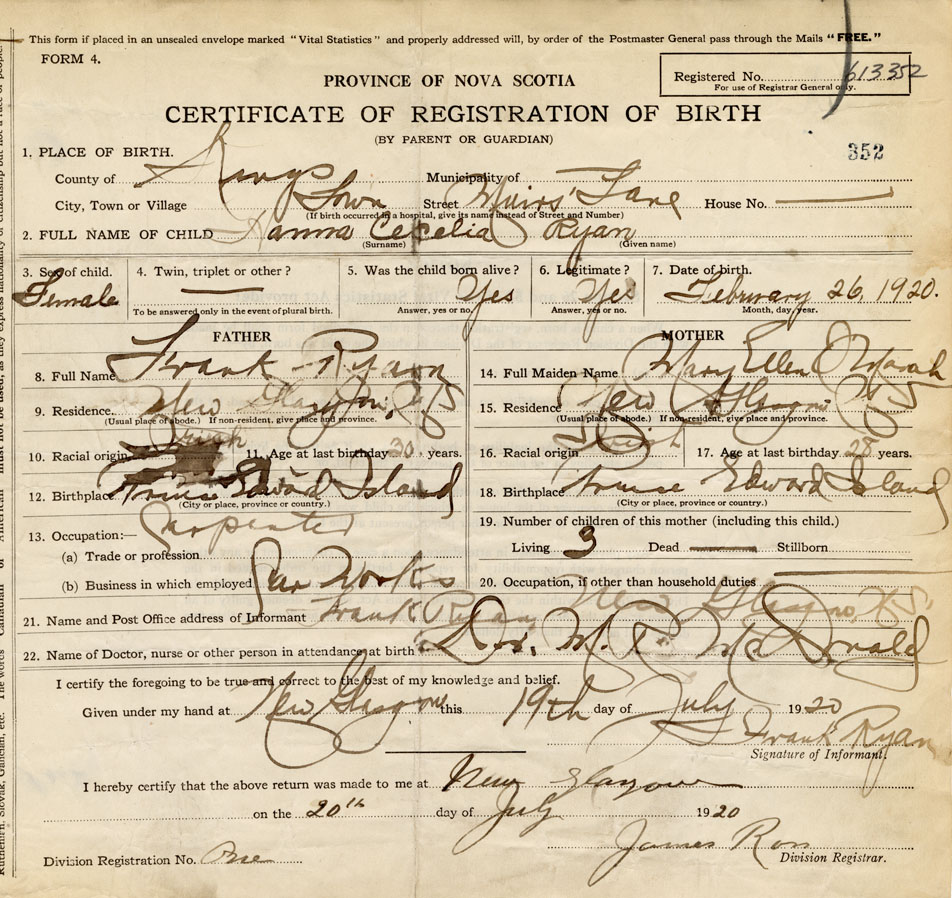 This form if placed in an unsealed envelope marked "Vital Statistics" and properly addressed will, by order of the Postmaster General pass through the Mails "FREE."
FORM 4.
Registered No. 613352
For use of Registrar General only.
PROVINCE OF NOVA SCOTIA
CERTIFICATE OF REGISTRATION OF BIRTH
(BY PARENT OR GUARDIAN)
352
1. PLACE OF BIRTH.
County of Kings Municipality of
City, Town or Village Town Street Muirs' Lane House No.
(If birth occurred in a hospital, give its name instead of Street and Number)
2. FULL NAME OF CHILD Hanna Cecelia Ryan
(Surname) (Given name)
3. Sex of child. 4. Twin, triplet or other? 5. Was the child born alive? 6. Legitimate? 7. Date of birth.
Female Yes Yes February 26, 1920.
To be answered only in the event of plural birth. Answer, yes or no. Answer, yes or no. Month, day, year.
FATHER MOTHER
8. Full Name Frank Ryan
14. Full Maiden Name Mary Ellen
9. Residence New Glasgow, N S
15. Residence New Glasgow N S
(Usual place of abode.) If non-resident, give place and province.
(Usual place of abode.) If non-resident, give place and province.
10. Racial origin Irish 11. Age at last birthday 30 years.
16. Racial origin Irish 17. Age at last birthday 28 years.
12. Birthplace Prince Edward Island
18. Birthplace Prince Edward Island
(City or place, province or country.)
(City or place, province or country.)
13. Occupation:—
(a) Trade or profession Carpenter
(b) Business in which employed Car Works
19. Number of children of this mother (including this child.)
Living 3 Dead Stillborn
20. Occupation, if other than household duties
21. Name and Post Office address of Informant Frank Ryan, New Glasgow, N.S.
22. Name of Doctor, nurse or other person in attendance at birth Dr. M. T. McDonald
I certify the foregoing to be true and correct to the best of my knowledge and belief.
Given under my hand at New Glasgow this 19th day of July 1920
Frank Ryan
Signature of Informant.
I hereby certify that the above return was made to me at New Glasgow
on the 20th day of July 1920
James Ross
Division Registration No. One Division Registrar.